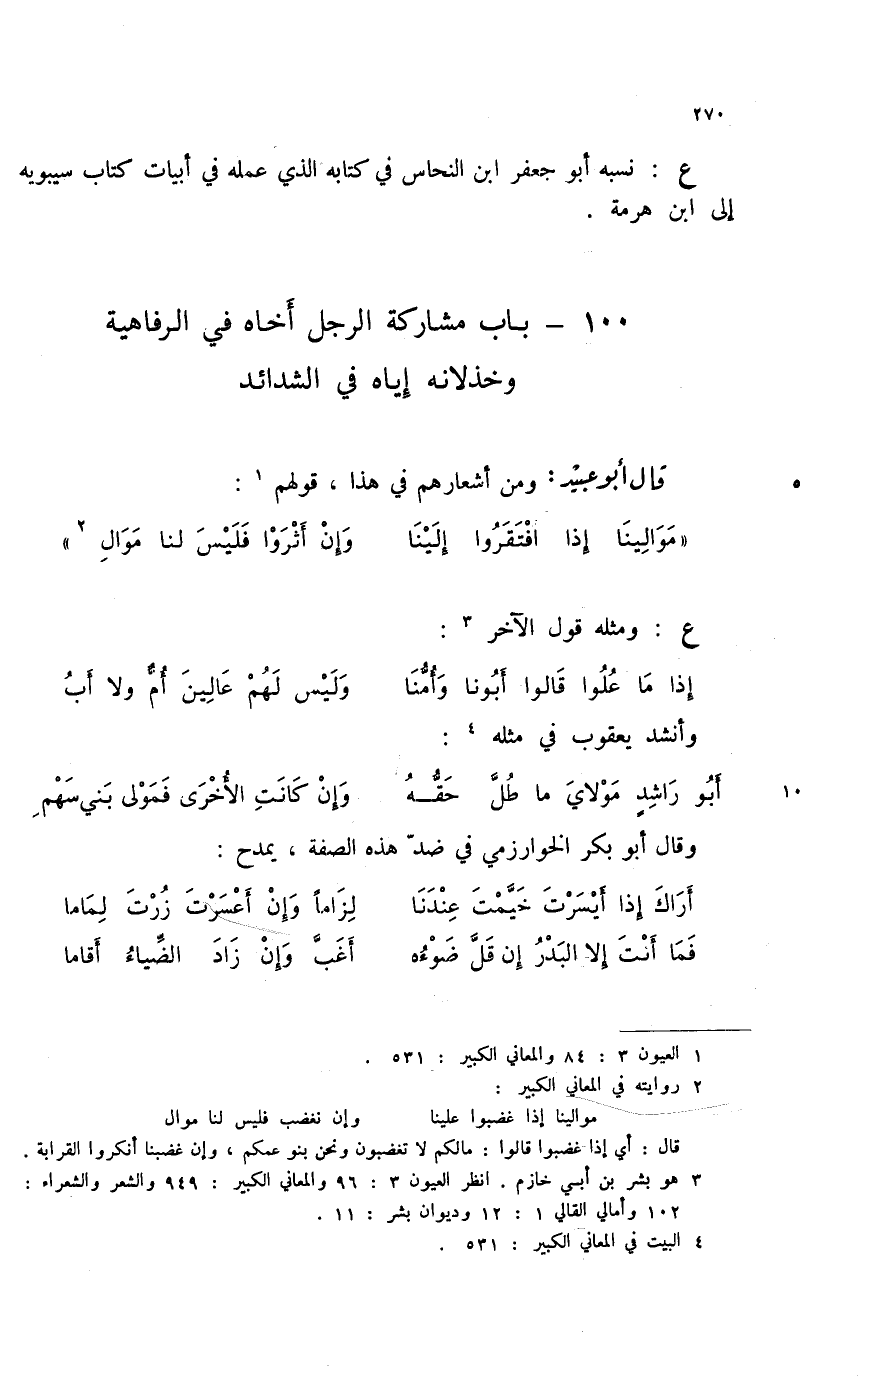 ٢٧٠
ع : نسبه أبو جعفر ابن النحاس في كتابه الذي عمله في أبيات كتاب سيبويه
إلى ابن هرمة .
١٠٠ – باب مشاركة الرجل أَخاه في الرفاهية
وخذلانه إياه في الشدائد
٥ قال أبو عبيد : ومن أشعارهم في هذا ، قولهم ١ :
« مَوَالِينَا إذا افْتَقَرُوا إلَيْنَا وَإنْ أَثْرَوْا فَلَيْسَ لنا مَوَالِ ٢ »
ع : ومثله قول الآخر ٣ :
إذا مَا عُلُوا قَالوا أَبُونا وَأُمُّنَا وَلَيْس لَهُمْ عَالِينَ أُمٌّ ولا أَبُ
وأنشد يعقوب في مثله ٤ :
١٠ أَبُو رَاشِدٍ مَوْلايَ ما طُلَّ حَقُّـهُ وَإنْ كَانَتِ الأُخْرَى فَمَوْلى بَني سَهْمِ
وقال أبو بكر الخوارزمي في ضدّ هذه الصفة ، يمدح :
أَرَاكَ إذا أَيْسَرْتَ خَيَّمْتَ عِنْدَنَا لِزَاماً وَإنْ أَعْسَرْتَ زُرْتَ لِمَاما
فَمَا أَنْتَ إلا البَدْرُ إن قَلَّ ضَوْءُه أَغَبَّ وَإنْ زَادَ الضِّياءُ أَقاما
١ العيون ٣ : ٨٤ والمعاني الكبير : ٥٣١ .
٢ روايته في المعاني الكبير :
موالينا إذا غضبوا علينا وإن نغضب فليس لنا موال
قال : أي إذا غضبوا قالوا : مالكم لا تغضبون ونحن بنو عمكم ، وإن غضبنا أنكروا القرابة .
٣ هو بشر بن أبي خازم . انظر العيون ٣ : ٩٦ والمعاني الكبير : ٩٤٩ والشعر والشعراء :
١٠٢ وأمالي القالي ١ : ١٢ وديوان بشر : ١١ .
٤ البيت في المعاني الكبير : ٥٣١ .